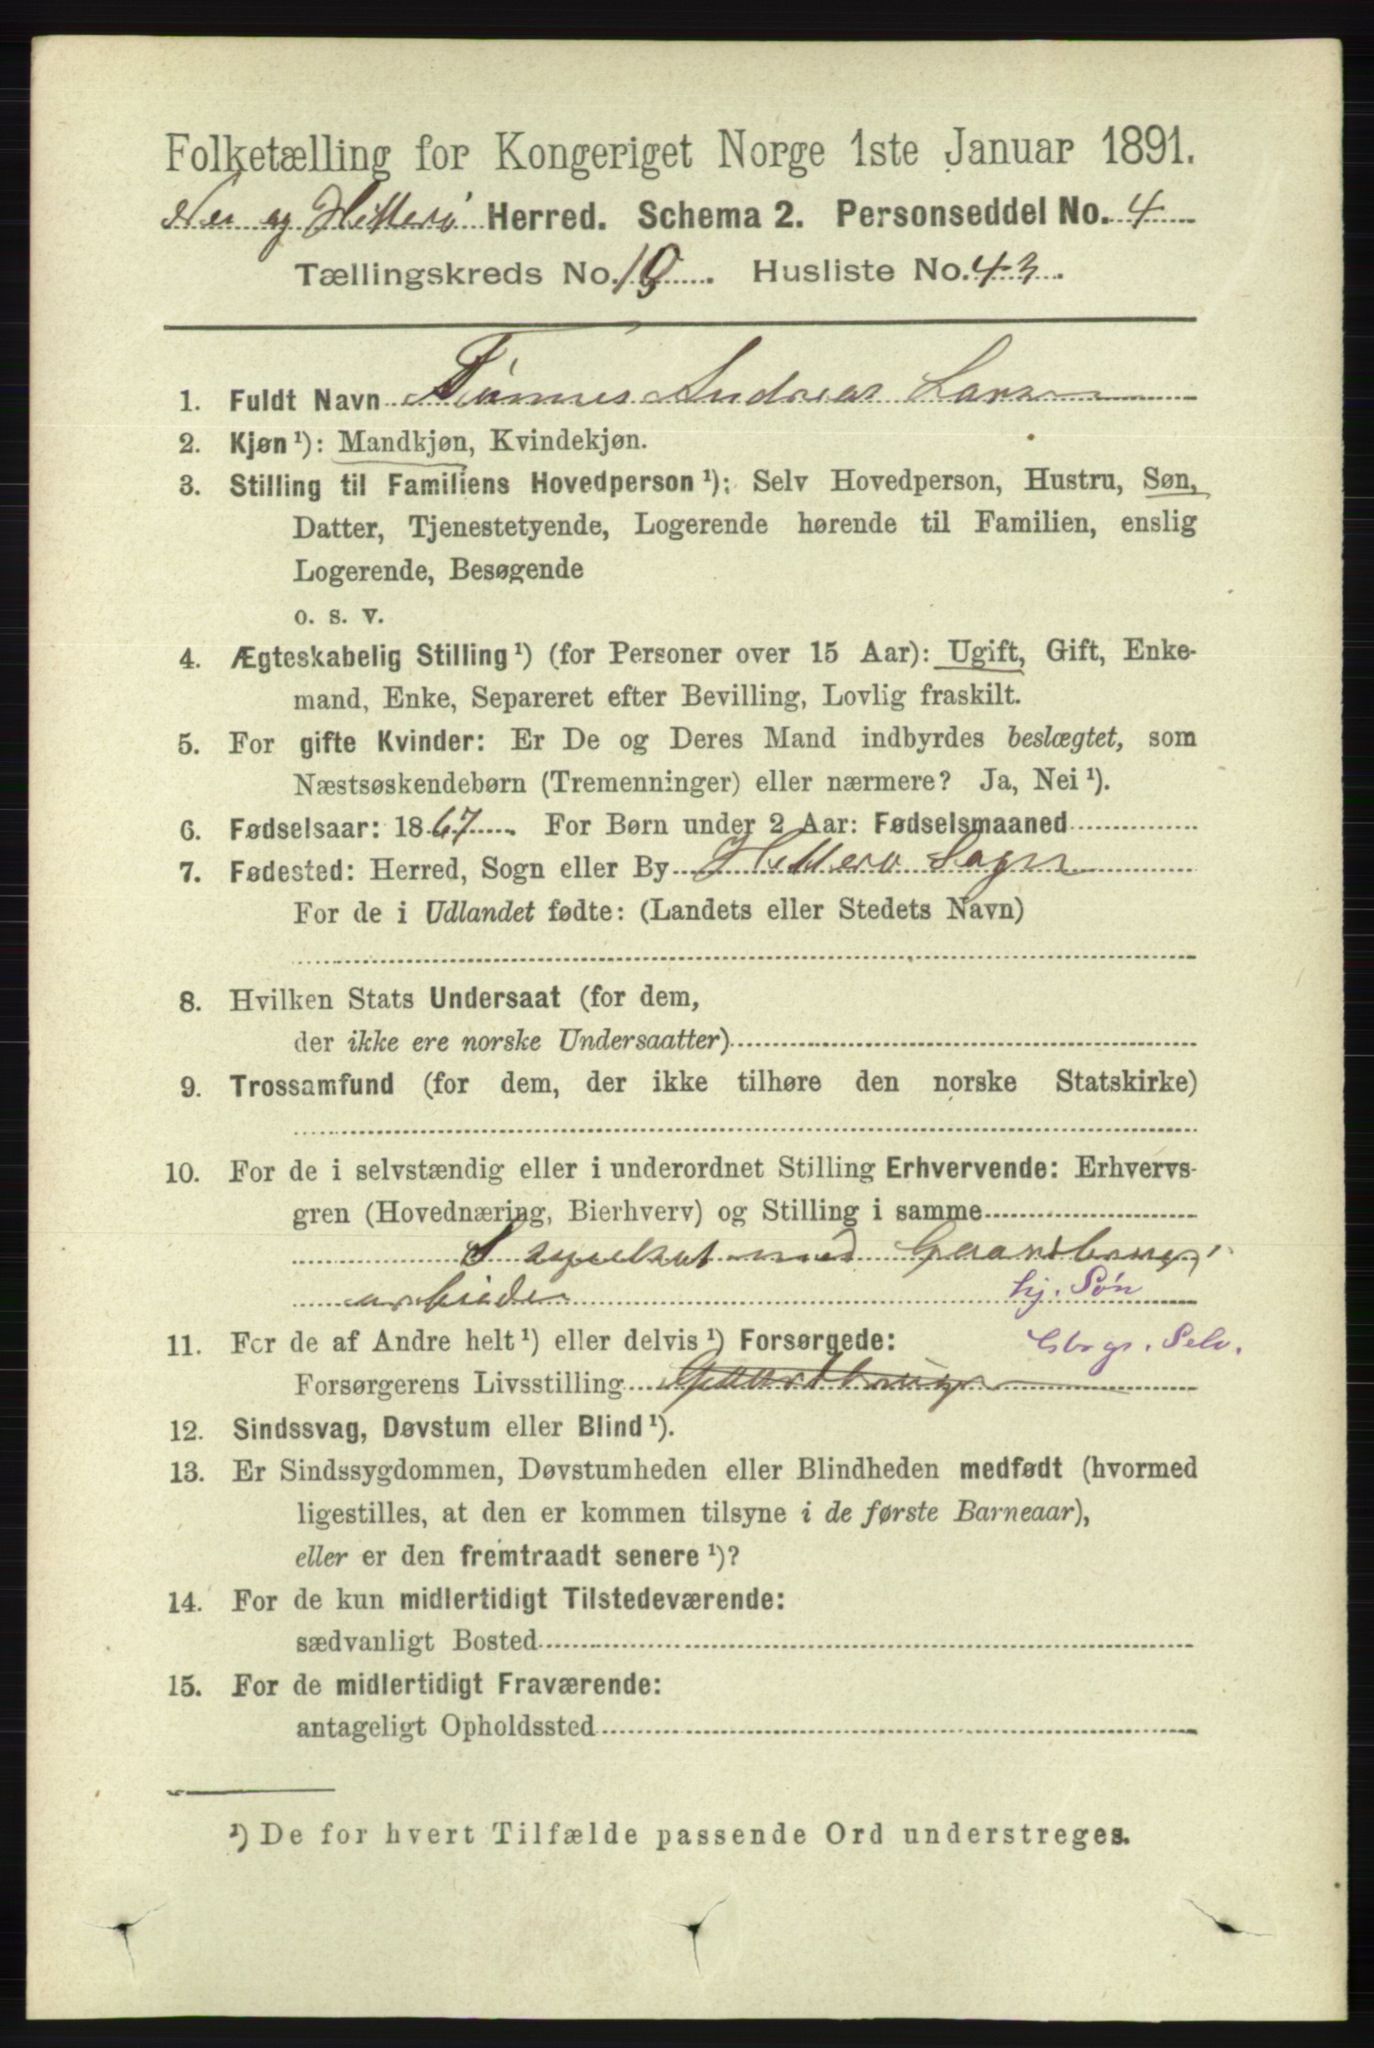 Folketælling for Kongeriget Norge 1ste Januar 1891.
Nes og Hitterø Herred. Schema 2. Personseddel No. 4
Tællingskreds No. 10. Husliste No. 43.
1. Fuldt Navn Tønnes Andreas Larsen
2. Kjøn¹): Mandkjøn, Kvindekjøn.
3. Stilling til Familiens Hovedperson¹): Selv Hovedperson, Hustru, Søn,
Datter, Tjenestetyende, Logerende hørende til Familien, enslig
Logerende, Besøgende
o. s. v.
4. Ægteskabelig Stilling¹) (for Personer over 15 Aar): Ugift, Gift, Enke-
mand, Enke, Separeret efter Bevilling, Lovlig fraskilt.
5. For gifte Kvinder: Er De og Deres Mand indbyrdes beslægtet, som
Næstsøskendebørn (Tremenninger) eller nærmere? Ja, Nei¹).
6. Fødselsaar: 1867. For Børn under 2 Aar: Fødselsmaaned
7. Fødested: Herred, Sogn eller By Hitterø Sogn
For de i Udlandet fødte: (Landets eller Stedets Navn)
8. Hvilken Stats Undersaat (for dem,
der ikke ere norske Undersaatter)
9. Trossamfund (for dem, der ikke tilhøre den norske Statskirke)
10. For de i selvstændig eller i underordnet Stilling Erhvervende: Erhvervs-
gren (Hovednæring, Bierhverv) og Stilling i samme
Sysselsat med Gaardbrugs
arbeide hj. Søn
11. For de af Andre helt¹) eller delvis¹) Forsørgede: Gbrgr. Selv.
Forsørgerens Livsstilling Gaardbruger
12. Sindssvag, Døvstum eller Blind¹).
13. Er Sindssygdommen, Døvstumheden eller Blindheden medfødt (hvormed
ligestilles, at den er kommen tilsyne i de første Barneaar),
eller er den fremtraadt senere¹)?
14. For de kun midlertidigt Tilstedeværende:
sædvanligt Bosted
15. For de midlertidigt Fraværende:
antageligt Opholdssted
¹) De for hvert Tilfælde passende Ord understreges.